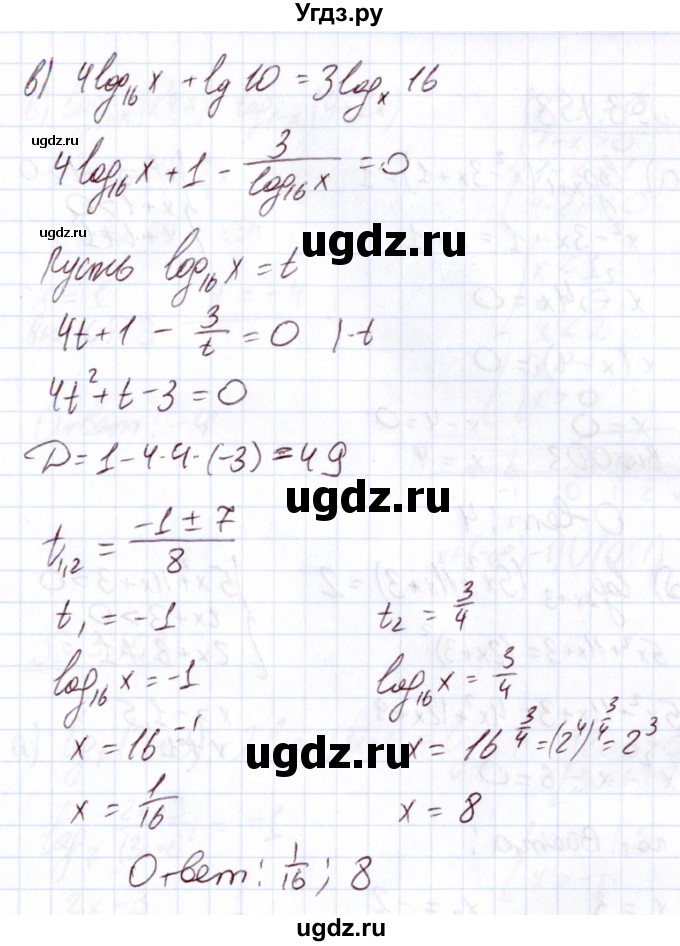 Угдз.ру
в) 4log₁₆x + lg 10 = 3logₓ 16
ugdz.ru
4log₁₆x + 1 - 3/log₁₆x = 0
ugdz.ru
ugdz.ru
Пусть log₁₆x = t
4t + 1 - 3/t = 0 |·t
4t² + t - 3 = 0
D = 1 - 4·4·(-3) = 49
ugdz.ru
t₁,₂ = (-1 ± 7)/8
t₁ = -1 t₂ = 3/4
log₁₆x = -1 log₁₆x = 3/4
x = 16⁻¹ x = 16^(3/4) = (2⁴)^(3/4) = 2³
ugdz.ru
x = 1/16 x = 8
Ответ: 1/16; 8
ugdz.ru